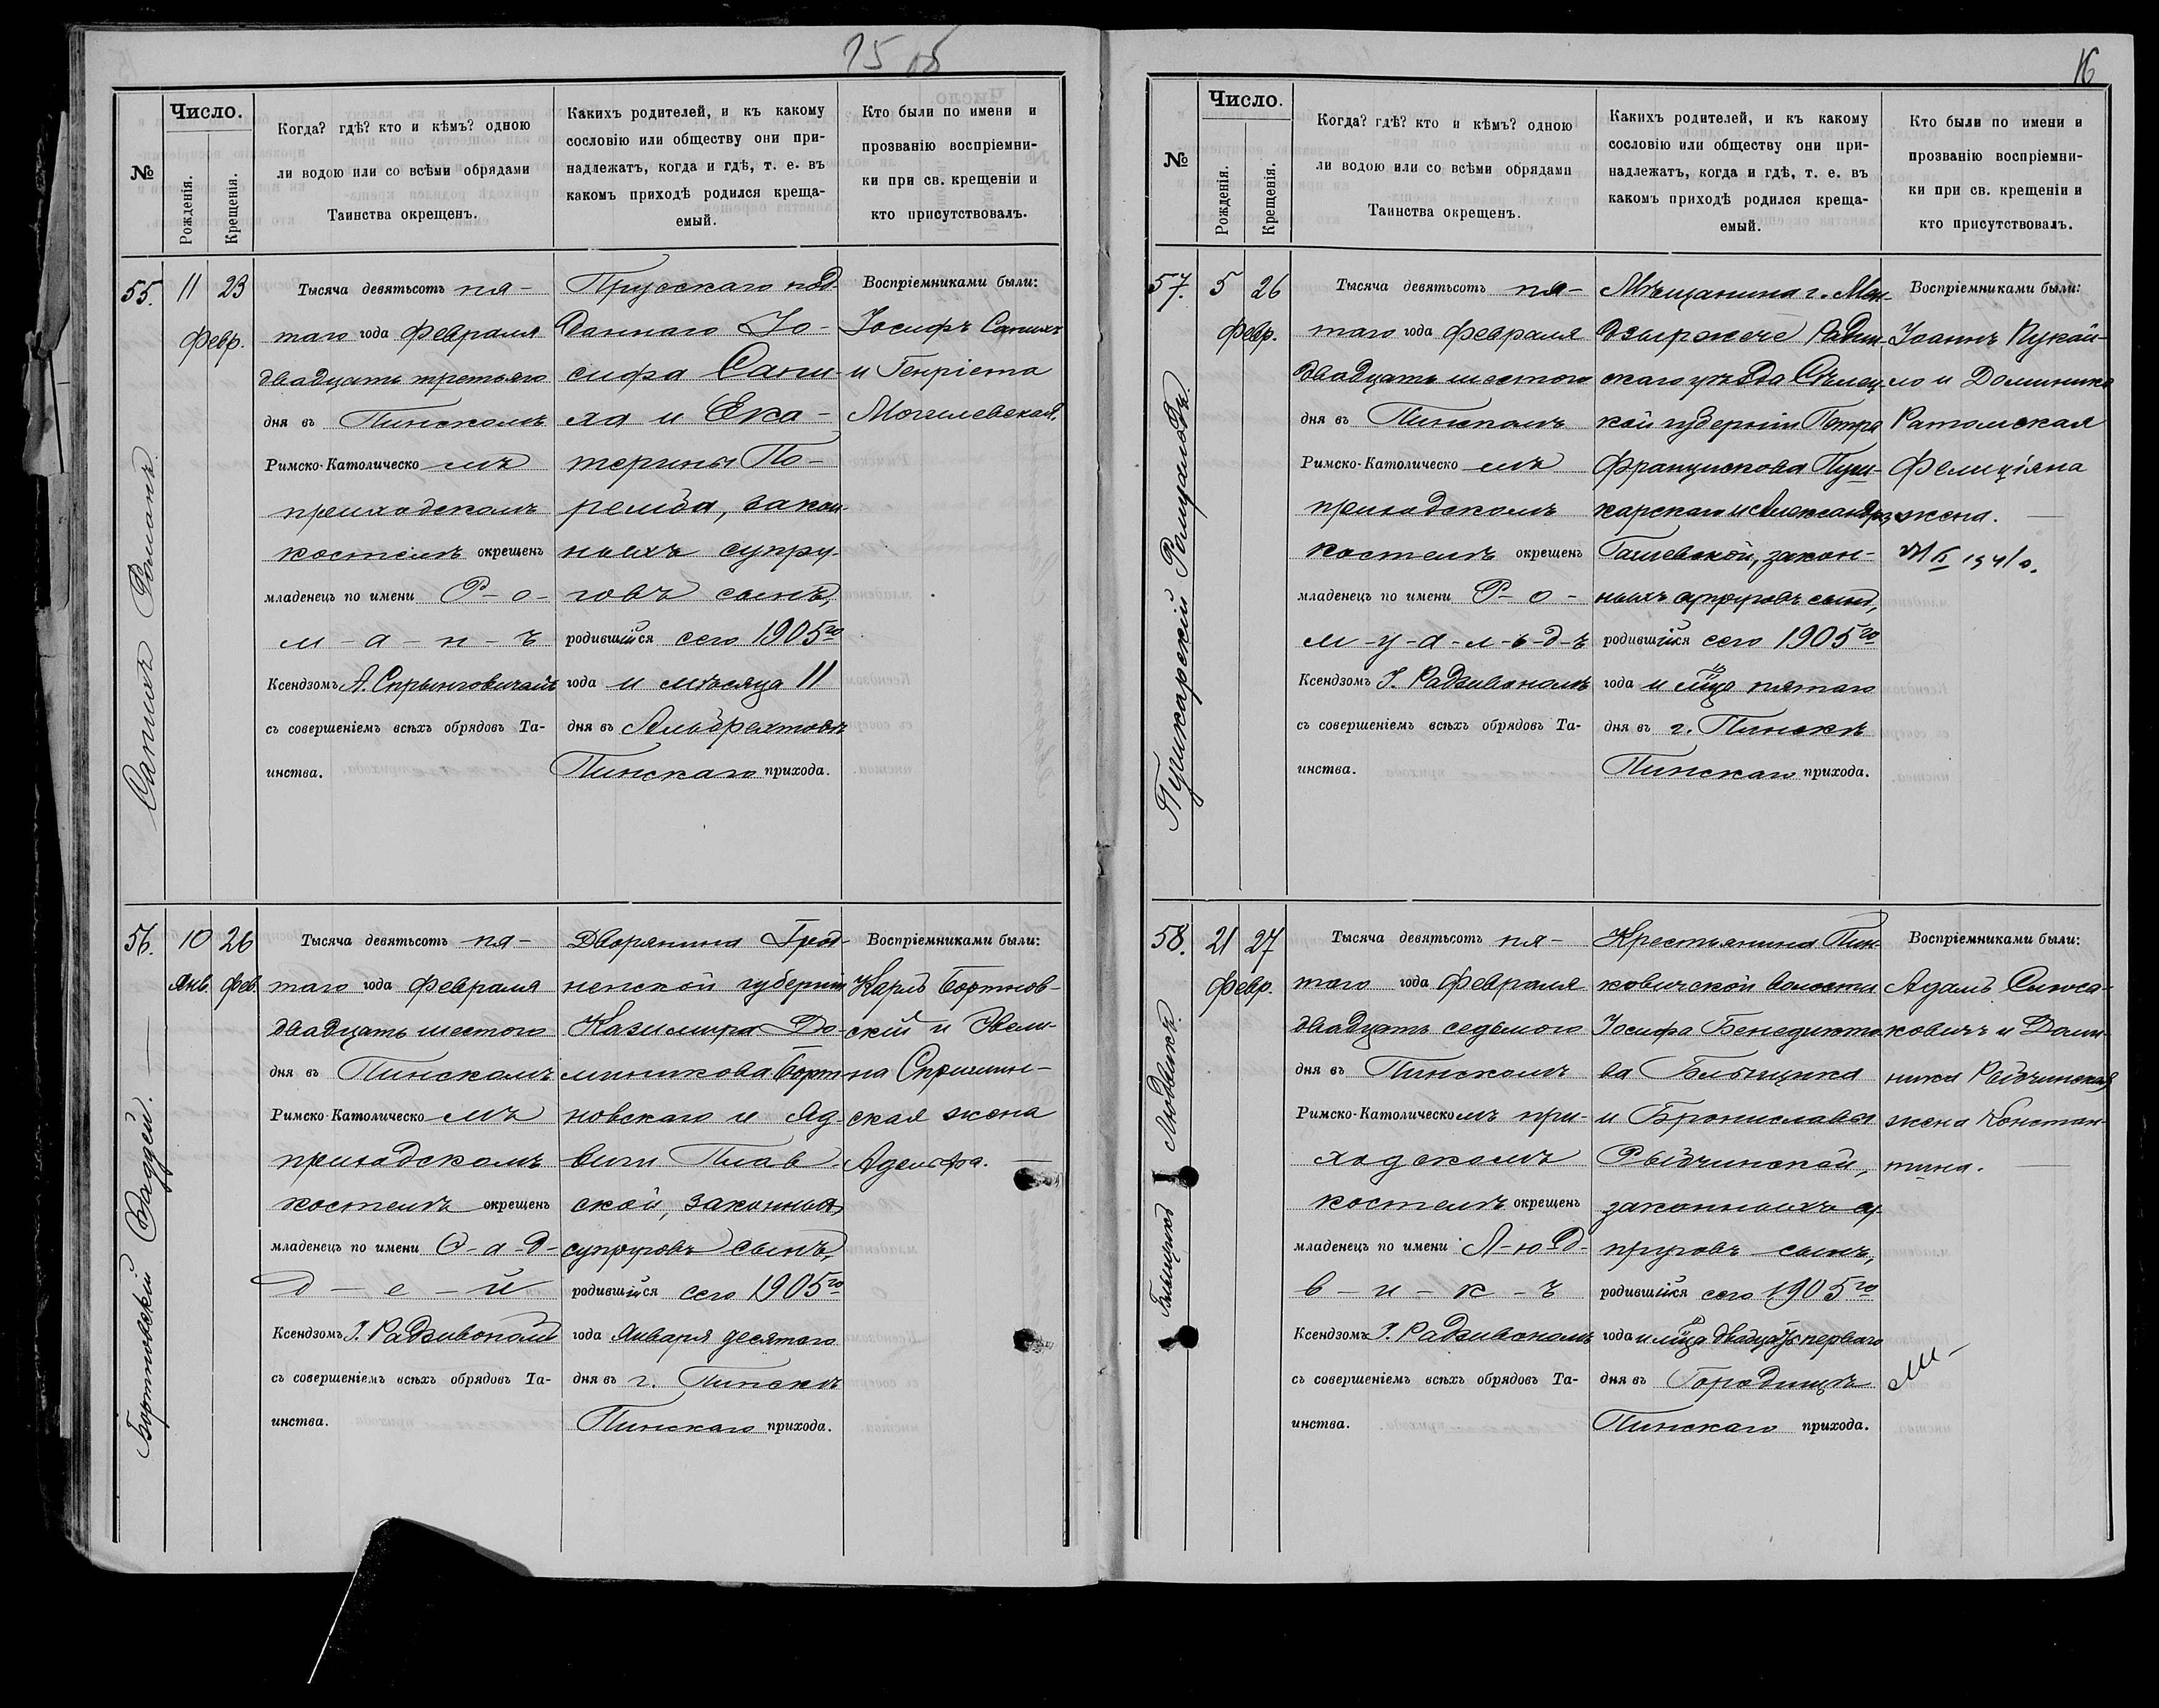 15 об
№
Число.
Рожденія.
Крещенія.
Когда? гдѣ? кто и кѣмъ? одною
ли водою или со всѣми обрядами
Таинства окрещенъ.
Какихъ родителей, и къ какому
сословію или обществу они при-
надлежатъ, когда и гдѣ, т. е. въ
какомъ приходѣ родился креща-
емый.
Кто были по имени и
прозванію воспріемни-
ки при св. крещеніи и
кто присутствовалъ.
Сапихъ Романъ.
55.
11 23
Февр.
Тысяча девятьсотъ пя-
таго года Февраля
двадцать третьяго
дня въ Пинскомъ
Римско-Католическо мъ
приходскомъ
костелѣ окрещенъ
младенецъ по имени Р-о-
м-а-н-ъ
Ксендзомъ А.
съ совершеніемъ всѣхъ обрядовъ Та-
инства.
Прусскаго под-
даннаго Іо-
сифа Сапи-
ха и Ека-
терины По-
ремба, закон-
ныхъ супру-
говъ сынъ,
родившійся сего 1905го
года и мѣсяца 11
дня въ Альбрехтовѣ
Пинскаго прихода.
Воспріемниками были:
Іосифъ Сапихъ
и Генріета
Могилевская.
Бортновскій Ѳаддей.
56.
10 26
Янв. Фев.
Тысяча девятьсотъ пя-
таго года Февраля
двадцать шестого
дня въ Пинскомъ
Римско-Католическо мъ
приходскомъ
костелѣ окрещенъ
младенецъ по имени Ѳ-а-д-
д-е-й
Ксендзомъ І. Радзивономъ
съ совершеніемъ всѣхъ обрядовъ Та-
инства.
Дворянина Грод-
ненской губерніи
Казимира До-
миникова Борт-
новскаго и Яд-
виги Плав-
ской, законныхъ
супруговъ сынъ,
родившійся сего 1905го
года Января десятаго
дня въ г. Пинскѣ
Пинскаго прихода.
Воспріемниками были:
Карлъ Бортнов-
скій и Эвели-
на
ская жена
Адольфа.
16
№
Число.
Рожденія.
Крещенія.
Когда? гдѣ? кто и кѣмъ? одною
ли водою или со всѣми обрядами
Таинства окрещенъ.
Какихъ родителей, и къ какому
сословію или обществу они при-
надлежатъ, когда и гдѣ, т. е. въ
какомъ приходѣ родился креща-
емый.
Кто были по имени и
прозванію воспріемни-
ки при св. крещеніи и
кто присутствовалъ.
Пушкарскій Ромуальдъ.
57.
5 26
Февр.
Тысяча девятьсотъ пя-
таго года Февраля
двадцать шестого
дня въ Пинскомъ
Римско-Католическо мъ
приходскомъ
костелѣ окрещенъ
младенецъ по имени Р-о-
м-у-а-л-ь-д-ъ
Ксендзомъ І. Радзивономъ
съ совершеніемъ всѣхъ обрядовъ Та-
инства.
Мѣщанина г. Мен-
дзыржече Радин-
скаго уѣзда Сѣдлец-
кой губерніи Петра
Францискова Пуш-
карскаго и Александры
закон-
ныхъ супруговъ сынъ,
родившійся сего 1905го
года и м-ца пятаго
дня въ г. Пинскѣ
Пинскаго прихода.
Воспріемниками были:
Іоаннъ Пукай-
ло и Доминика
Ратомская
Фелиціяна
жена.
Людвикъ.
58.
21 27
Февр.
Тысяча девятьсотъ пя-
таго года Февраля
двадцать седьмого
дня въ Пинскомъ
Римско-Католическомъ при-
ходскомъ
костелѣ окрещенъ
младенецъ по имени Л-ю-д-
в-и-к-ъ
Ксендзомъ І. Радзивономъ
съ совершеніемъ всѣхъ обрядовъ Та-
инства.
Крестьянина Пин-
ковичской волости
Іосифа Бенедикто-
ва
и Брониславы
Рыбчинской,
законныхъ су-
пруговъ сынъ,
родившійся сего 1905го
года и м-ца двадцать перваго
дня въ Городищѣ
Пинскаго прихода.
Воспріемниками были:
Адамъ Слюса-
ковичъ и Доми-
ника Рыбчинская
жена Констан-
тина.